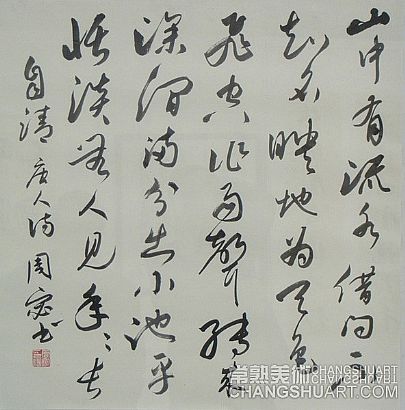 山中有流水借問不
知名映地為天色
飛空作雨聲轉來
深澗滿分出小池平
恬淡無人見年〻長
自清 唐人詩 周書
常熟美術CHANGSHUART
CHANGSHUART.COM